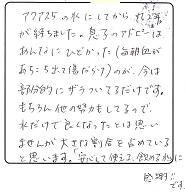 アクアスの水にしてから
が経ちました。息子のアトピーは
あんなにひどかった(毎朝血が
あちこち出て傷だらけ)のが、今は
部分的にザラついてるだけです。
もちろん他の努力もしてるので、
水だけで良くなったとは思い
ませんが大きな割合を占めている
と思います。「安心して使える、飲める水」に
感謝!!
です